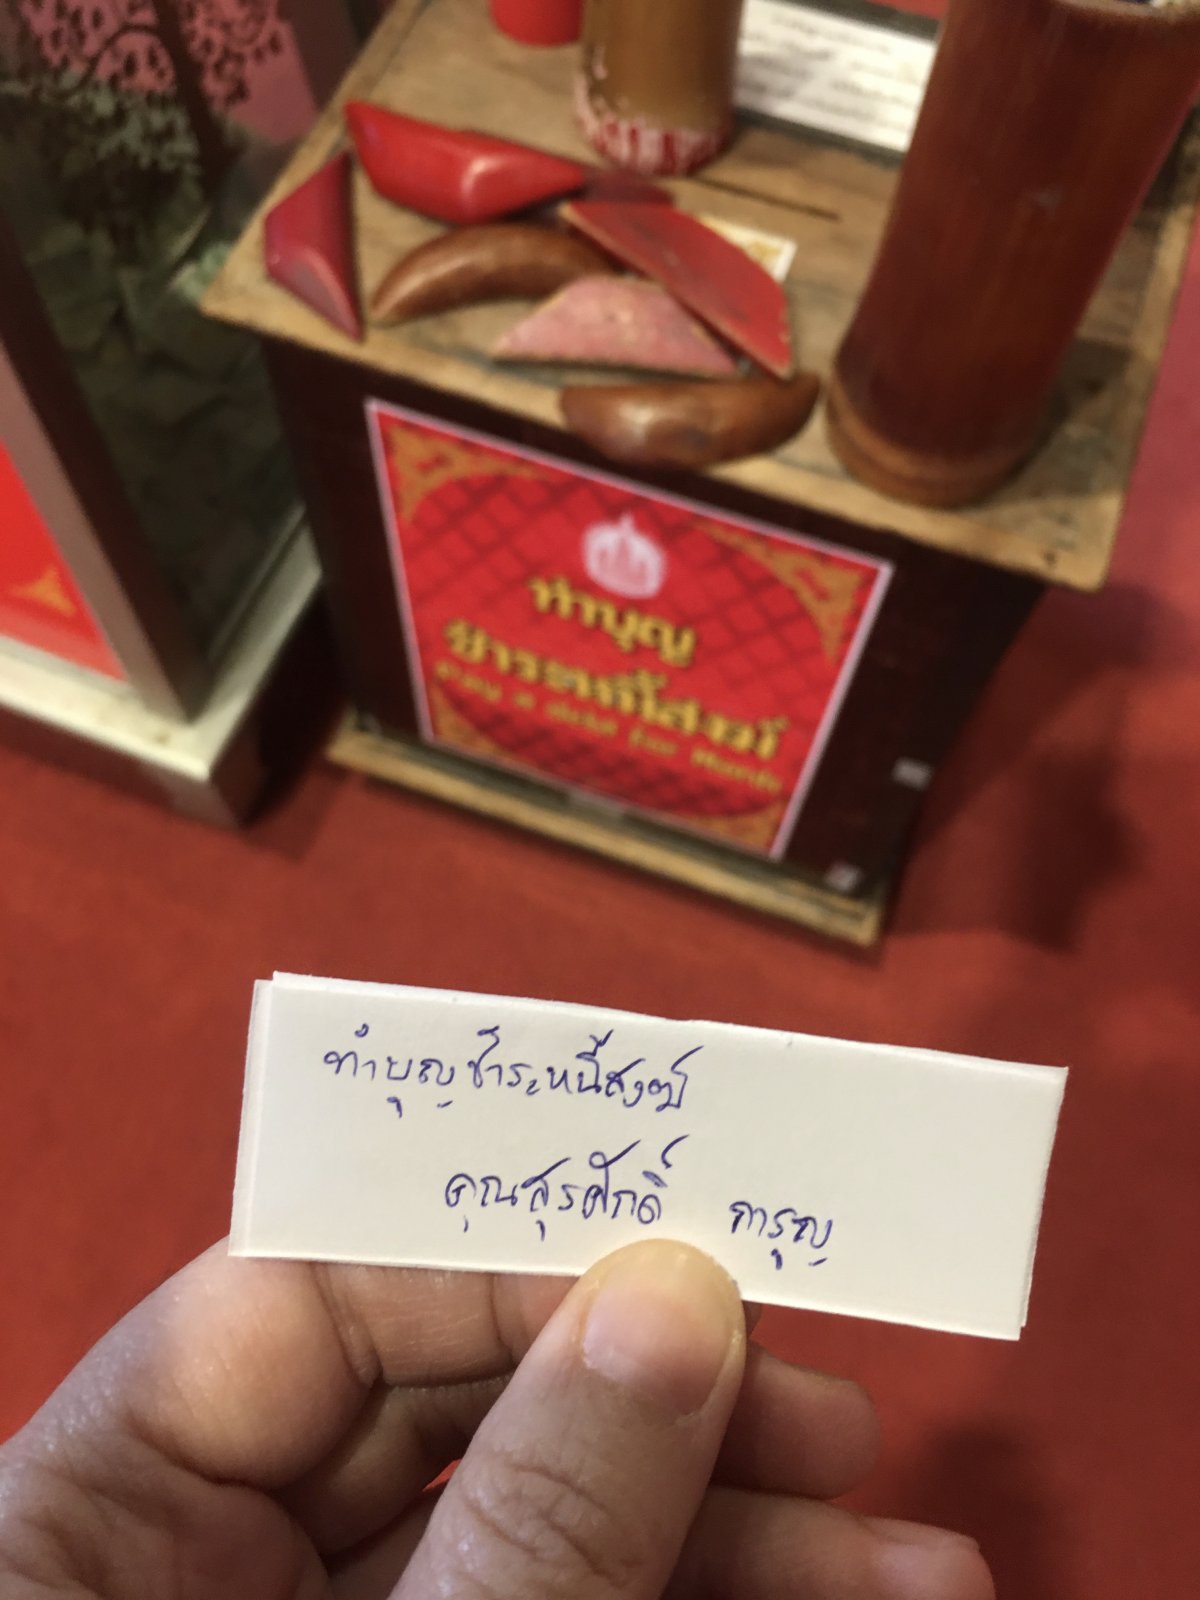 ทำบุญ
ชำระหนี้สงฆ์
Pay a debt for monk
ทำบุญชำระหนี้สงฆ์
คุณสุรศักดิ์ การุญ